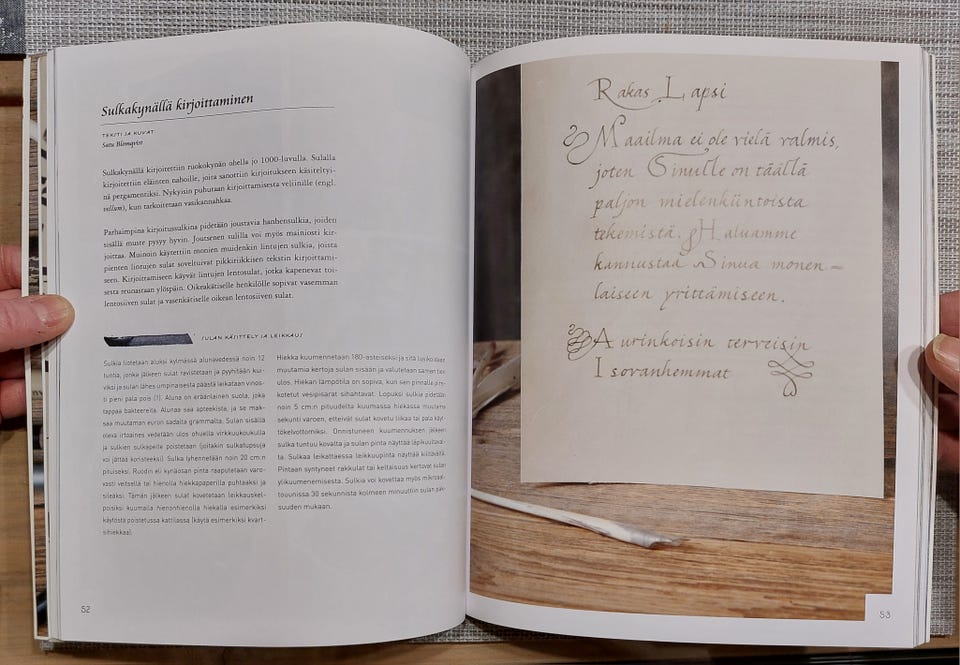 Sulkakynällä kirjoittaminen
TEKSTI JA KUVAT
Satu Blomqvist
Sulkakynällä kirjoitettiin ruokokynän ohella jo 1000-luvulla. Sulalla
kirjoitettiin eläinten nahoille, joita sanottiin kirjoitukseen käsiteltyi-
nä pergamentiksi. Nykyisin puhutaan kirjoittamisesta veliinille (engl.
vellum), kun tarkoitetaan vasikannahkaa.
Parhaimpina kirjoitussulkina pidetään joustavia hanhensulkia, joiden
sisällä muste pysyy hyvin. Joutsenen sulilla voi myös mainiosti kir-
joittaa. Muinoin käytettiin monien muidenkin lintujen sulkia, joista
pienten lintujen sulat soveltuivat pikkiriikkisen tekstin kirjoittami-
seen. Kirjoittamiseen käyvät lintujen lentosulat, jotka kapenevat toi-
sesta reunastaan ylöspäin. Oikeakätiselle henkilölle sopivat vasemman
lentosiiven sulat ja vasenkätiselle oikean lentosiiven sulat.
SULAN KÄSITTELY JA LEIKKAUS
Sulkia liotetaan aluksi kylmässä alunavedessä noin 12
tuntia, jonka jälkeen sulat ravistetaan ja pyyhitään kui-
viksi ja sulan lähes umpinaisesta päästä leikataan vinos-
ti pieni pala pois (1). Aluna on eräänlainen suola, joka
tappaa bakteereita. Alunaa saa apteekista, ja se mak-
saa muutaman euron sadalta grammalta. Sulan sisällä
oleva irtoaines vedetään ulos ohuella virkkuukoukulla
ja sulkien sulkapeite poistetaan (joitakin sulkatupsuja
voi jättää koristeeksi). Sulka lyhennetään noin 20 cm:n
pituiseksi. Ruodin eli kynäosan pinta raaputetaan varo-
vasti veitsellä tai hienolla hiekkapaperilla puhtaaksi ja
sileäksi. Tämän jälkeen sulat kovetetaan leikkauskel-
poisiksi kuumalla hienonhienolla hiekalla esimerkiksi
käytöstä poistetussa kattilassa (käytä esimerkiksi kvart-
sihiekkaa).
Hiekka kuumennetaan 180-asteiseksi ja sitä lusikoidaan
muutamia kertoja sulan sisään ja valutetaan samen tien
ulos. Hiekan lämpötila on sopiva, kun sen pinnalle pirs-
kotetut vesipisarat sihahtavat. Lopuksi sulkia pidetään
noin 5 cm:n pituudelta kuumassa hiekassa muutama
sekunti varoen, etteivät sulat kovetu liikaa tai pala käyt-
tökelvottomiksi. Onnistuneen kuumennuksen jälkeen
sulka tuntuu kovalta ja sulan pinta näyttää läpikuultaval-
ta. Sulkaa leikattaessa leikkuupinta näyttää kiiltävältä.
Pintaan syntyneet rakkulat tai keltaisuus kertovat sulan
ylikuumenemisesta. Sulkia voi kovettaa myös mikroaal-
touunissa 30 sekunnista kolmeen minuuttiin sulan pak-
suuden mukaan.
52
Rakas Lapsi
Maailma ei ole vielä valmis,
joten Sinulle on täällä
paljon mielenkiintoista
tekemistä. Haluamme
kannustaa Sinua monen-
laiseen yrittämiseen.
Aurinkoisin terveisin
Isovanhemmat
53